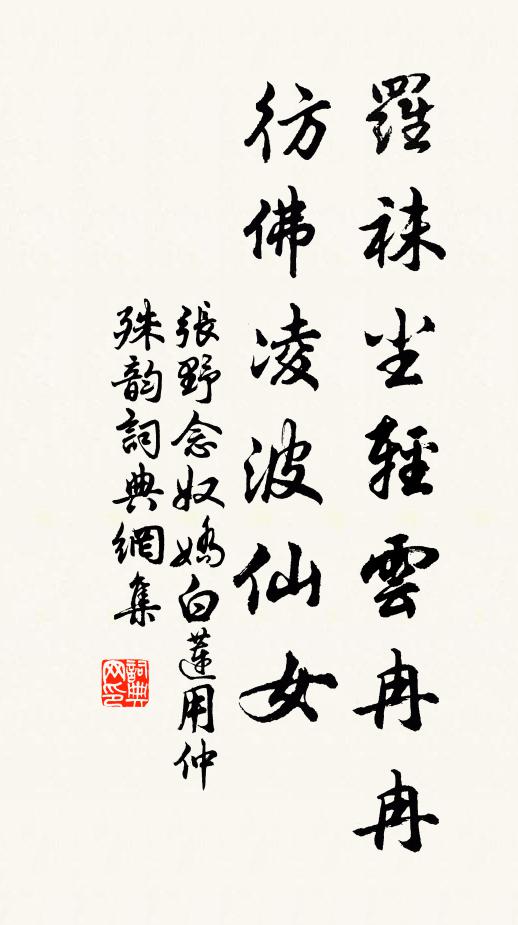 羅袜尘輕雲冉冉
彷佛凌波仙女
張野念奴嬌白蓮用仲
殊韵詞典網集
詞典网印